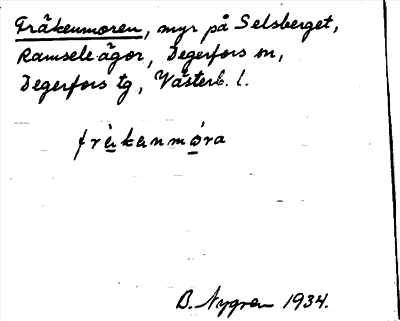 Fräkenmoren, myr på Selsberget,
Ramsele ägor, Degerfors sn,
Degerfors tg, Västerb. l.
fräkenmora
B. Nygren 1934.